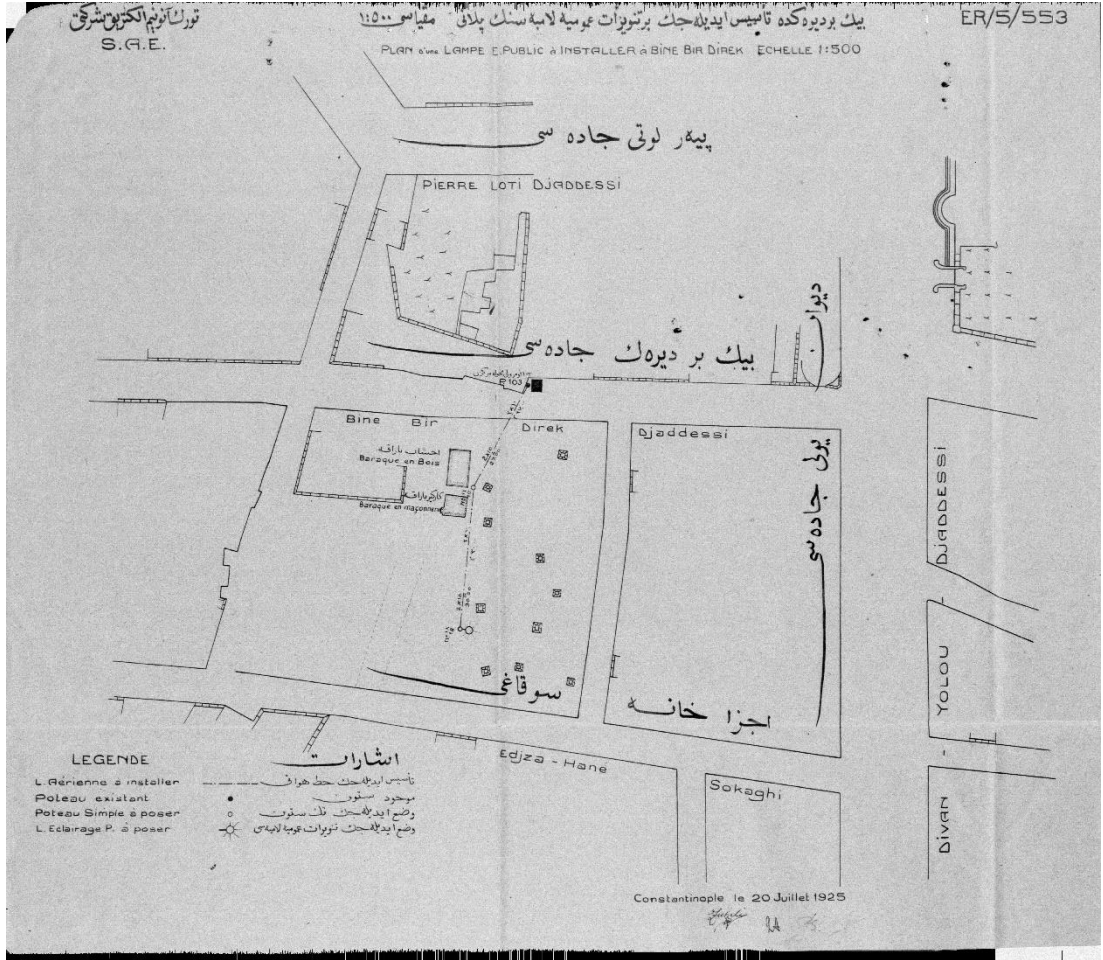 تورك آنونیم الكتریق شركتی
S.A.E.
بیك بر دیركده تأسیس ایدیله جك بر تنویرات عمومیه لامبه سنك پلانی مقیاسی ١:٥٠٠
PLAN d'une LAMPE E.PUBLIC à INSTALLER à BINE BIR DIREK ECHELLE 1:500
ER/5/553
پیەر لوتی جاده سی
PIERRE LOTI DJADDESSI
بیك بر دیرەك جاده سی
P 103
Bine Bir Direk Djaddessi
دیوان یولی جاده سی
DIVAN - YOLOU - DJADDESSI
اخشاب باراقه
Baraque en Bois
كارگیر باراقه
Baraque en maçonnerie
اجزا خانه سوقاغی
Edjza - Hane Sokaghi
LEGENDE اشارات
L. Aérienne à installer تأسیس ایدیله جك خط هوائی
Poteau existant موجود ستون
Poteau Simple à poser وضع ایدیله جك تك ستون
L. Eclairage P. à poser وضع ایدیله جك تنویرات عمومیه لامبه سی
Constantinople le 20 Juillet 1925